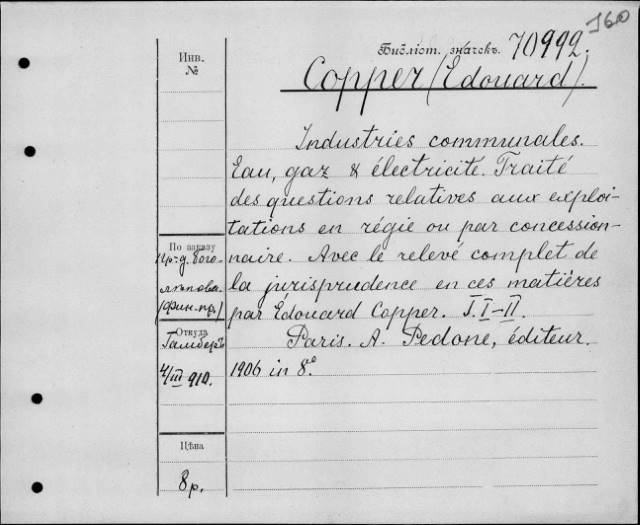 160
Библіот. значекъ. 70992.
Copper (Edouard).
Инв.
№
Industries communales.
Eau, gaz & électricité. Traité
des questions relatives aux exploi-
tations en régie ou par concession-
naire. Avec le relevé complet de
la jurisprudence en ces matières
par Édouard Copper. T. I-II.
Paris. A. Pedone, éditeur.
1906 in 8º.
По заказу
пр-д. Бого-
лѣпова.
(Фин. пр.)
Откуда
Гамберъ
4/III 910.
Цѣна
8 р.